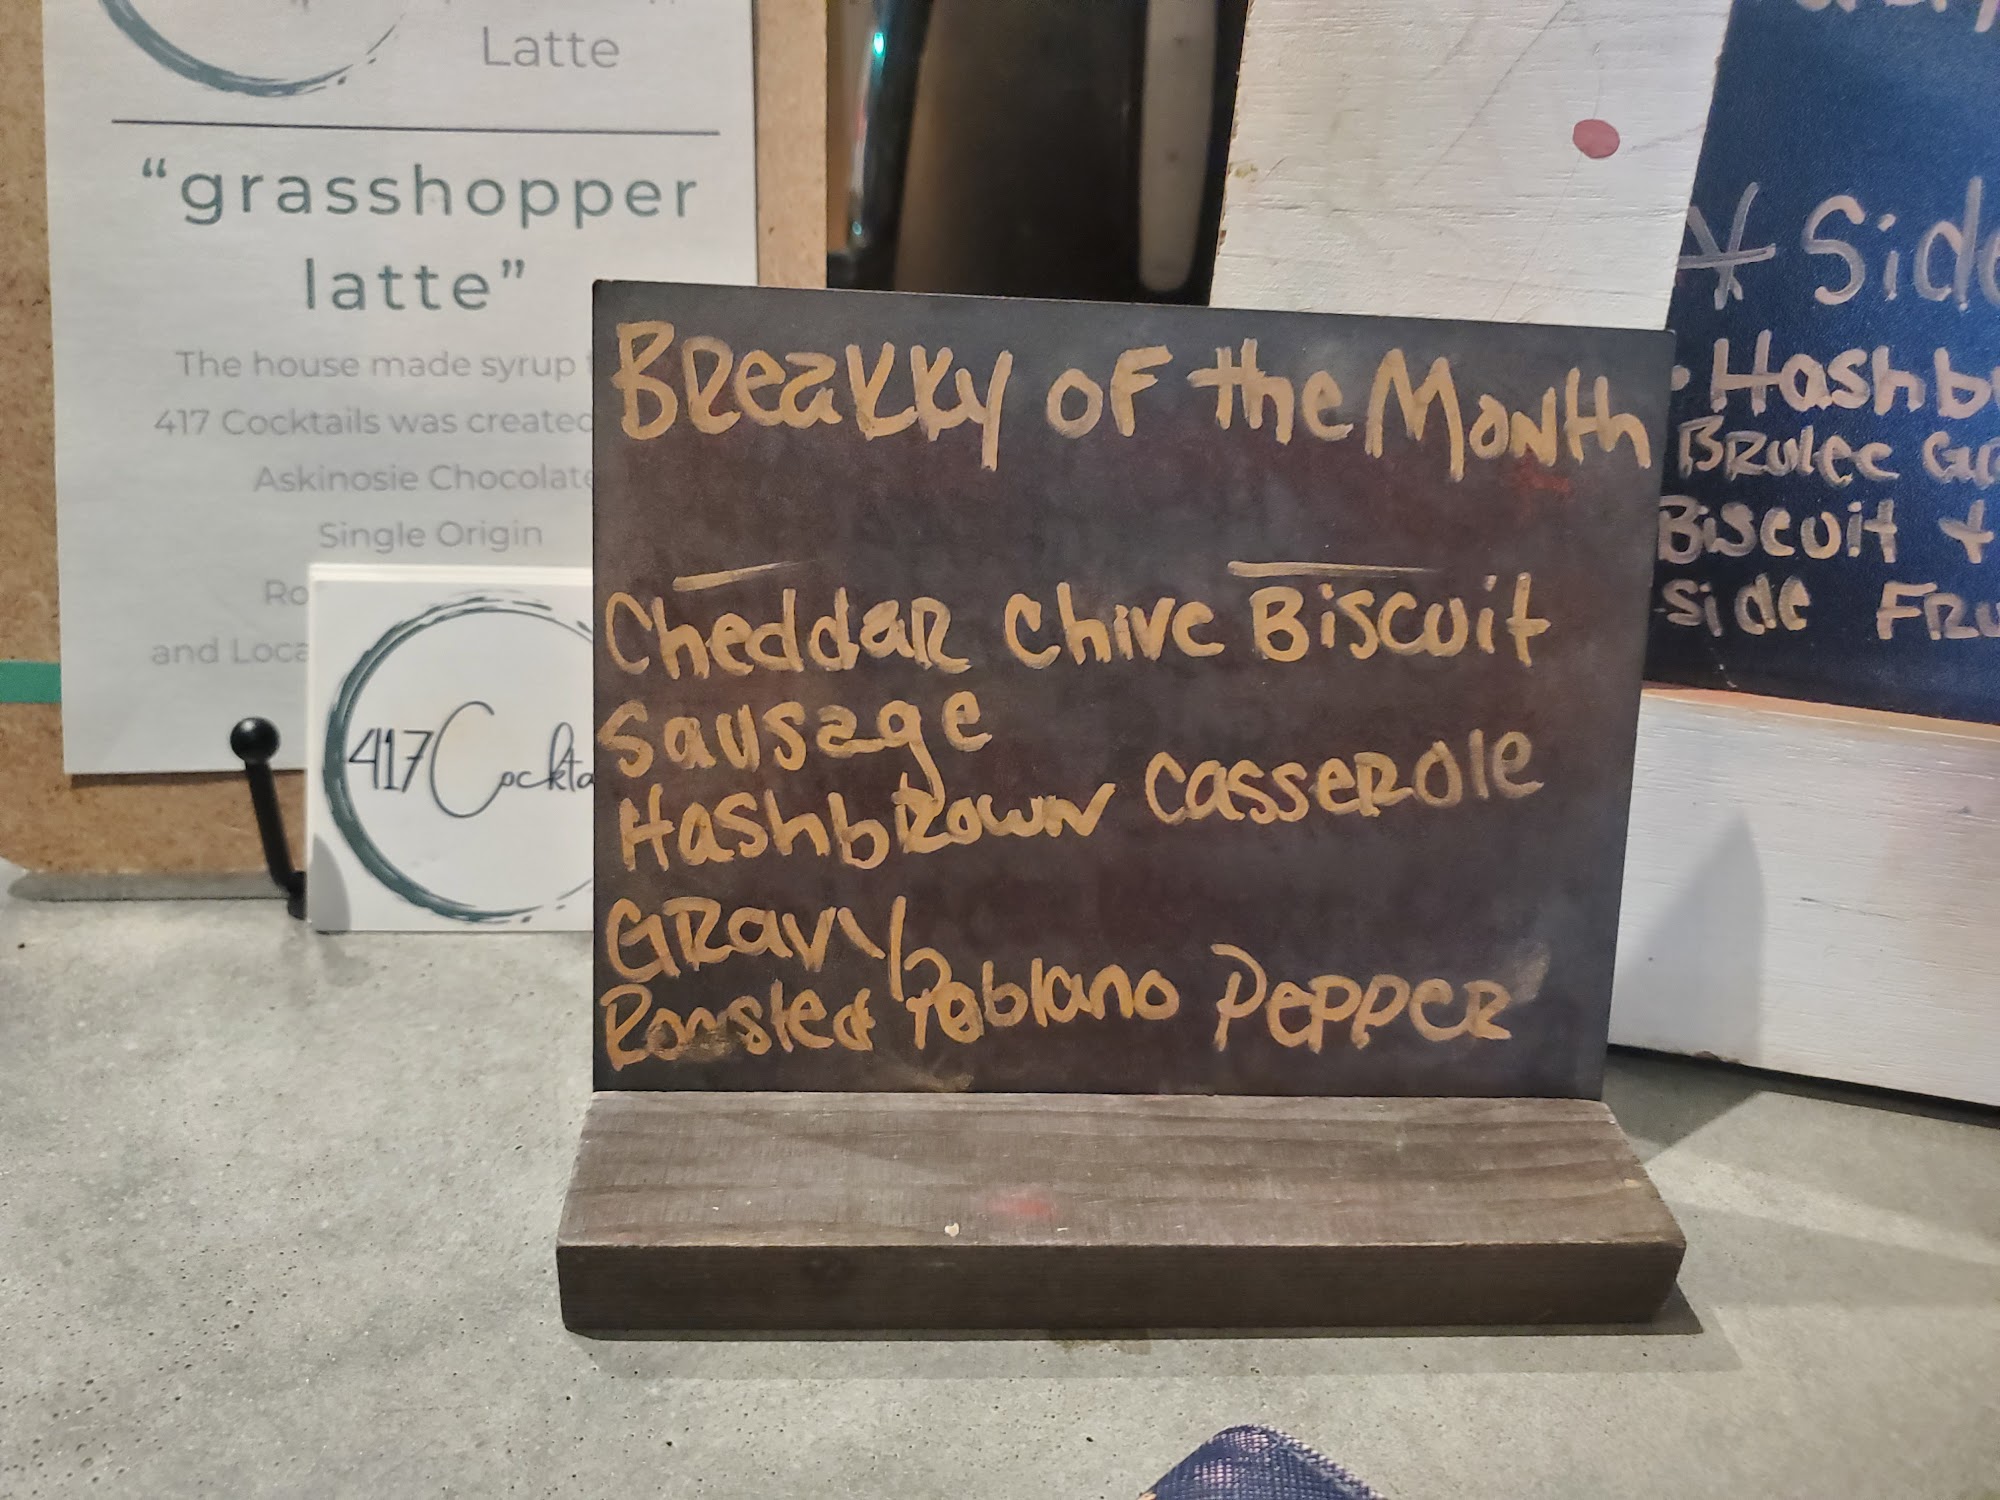 Latte
"grasshopper
latte"
The house made syrup
417 Cocktails was created
Askinosie Chocolate
Single Origin
and
417 Cockta
Breakky of the Month
Cheddar Chive Biscuit
Sausage
Hashbrown Casserole
Gravy
Roasted Poblano Pepper
* Side
• Hashb
Brulee
Biscuit +
Side